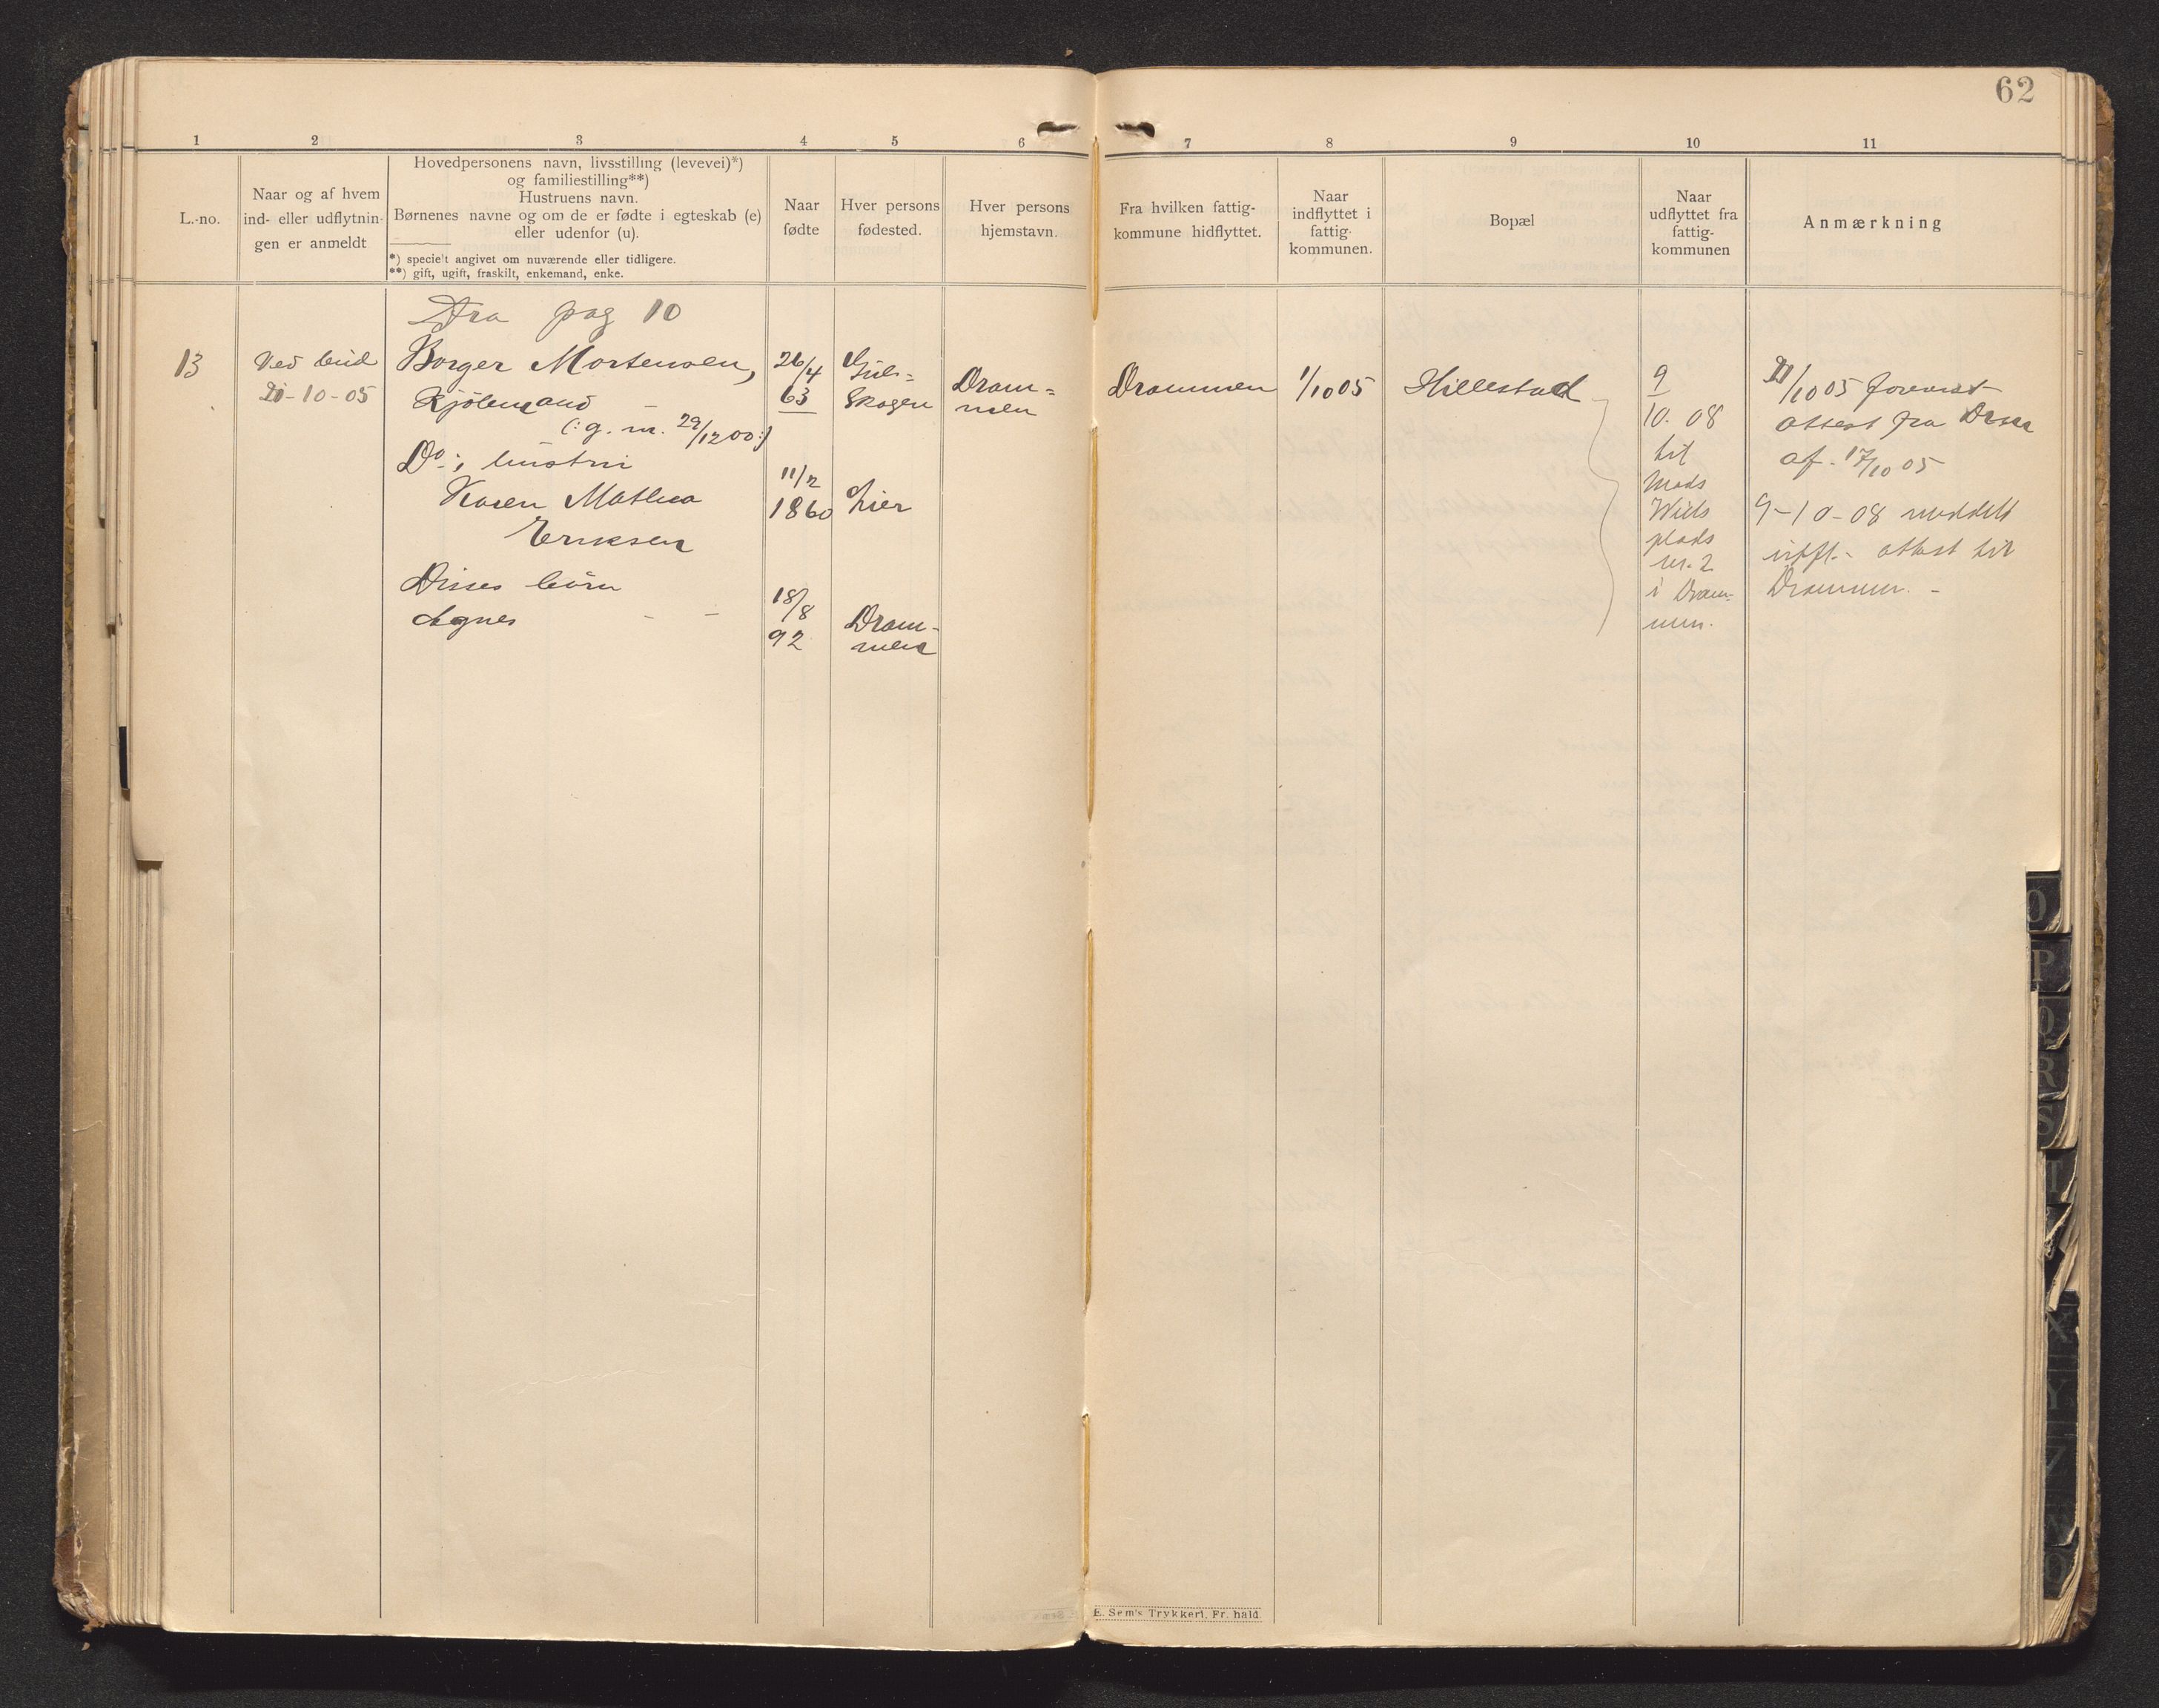 62
1 2 3 4 5 6 7 8 9 10 11
L.-no.
Naar og af hvem
ind- eller udflytnin-
gen er anmeldt
Hovedpersonens navn, livsstilling (levevei)*)
og familiestilling**)
Hustruens navn.
Børnenes navne og om de er fødte i egteskab (e)
eller udenfor (u).
*) specielt angivet om nuværende eller tidligere.
**) gift, ugift, fraskilt, enkemand, enke.
Naar
fødte
Hver persons
fødested.
Hver persons
hjemstavn.
Fra hvilken fattig-
kommune hidflyttet.
Naar
indflyttet i
fattig-
kommunen.
Bopæl
Naar
udflyttet fra
fattig-
kommunen
Anmærkning
Fra pag 10
13
Ved bud
-10-05
Borger Mortensen,
(: g. m. 29/12 00:)
Do; hustru
Karen Mathea
Eriksen
Disses børn
Agnes - -
26/4
63
11/2
1860
18/8
92
Gul=
skogen
Lier
Dram-
men
Dram=
men
Drammen
1/10 05
Hillestad
9
10. 08
til
Mads
Wiels
plads
nr. 2
i Dram-
men.
/10 05 forevist
attest fra Dr
af 17/10 05
9-10-08 meddelt
utfl.- attest til
Drammen. -
O
P
Q
R
S
T
X
Y
E. Sem's Trykkeri, Fr.hald.